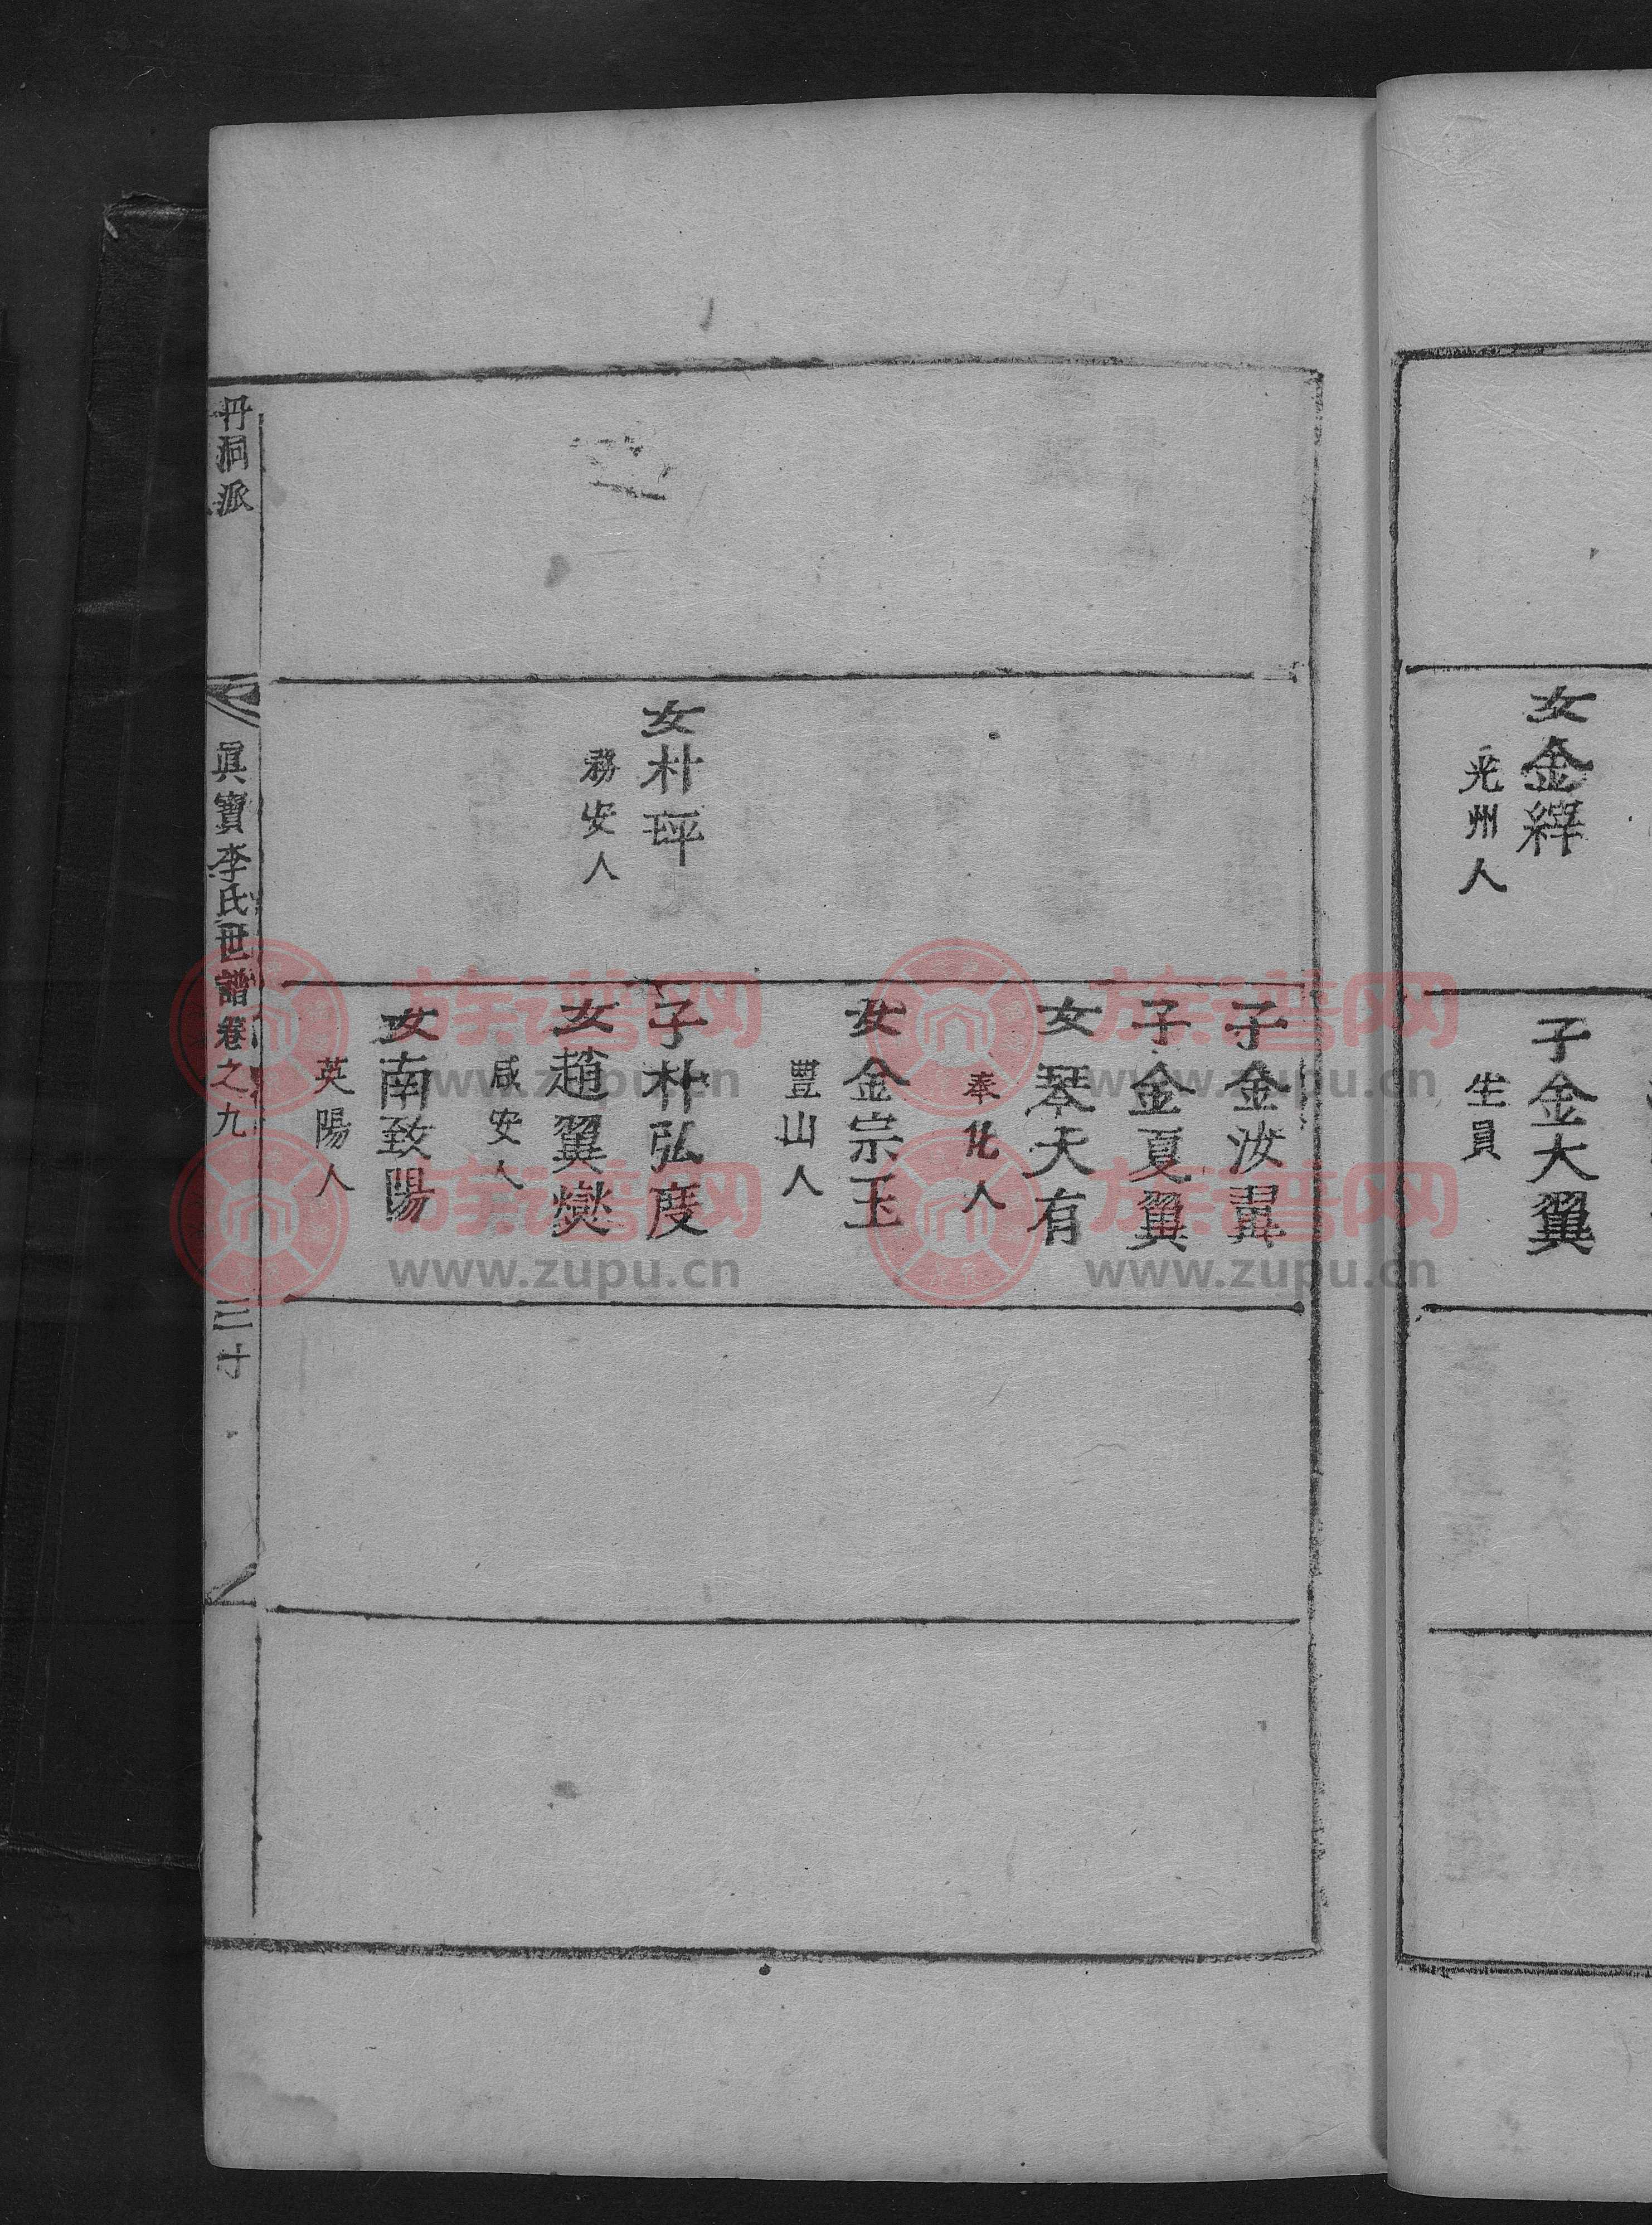 女金繹
光州人
子金大翼
生員
女朴坪
務安人
子金汝翼
子金夏翼
女琴天有
奉化人
女金宗玉
豊山人
子朴弘度
女趙翼燮
咸安人
女南致陽
英陽人
丹洞派
眞寶李氏世譜卷之九
三十
族谱网
www.zupu.cn
族谱网
www.zupu.cn
族谱网
www.zupu.cn
族谱网
www.zupu.cn